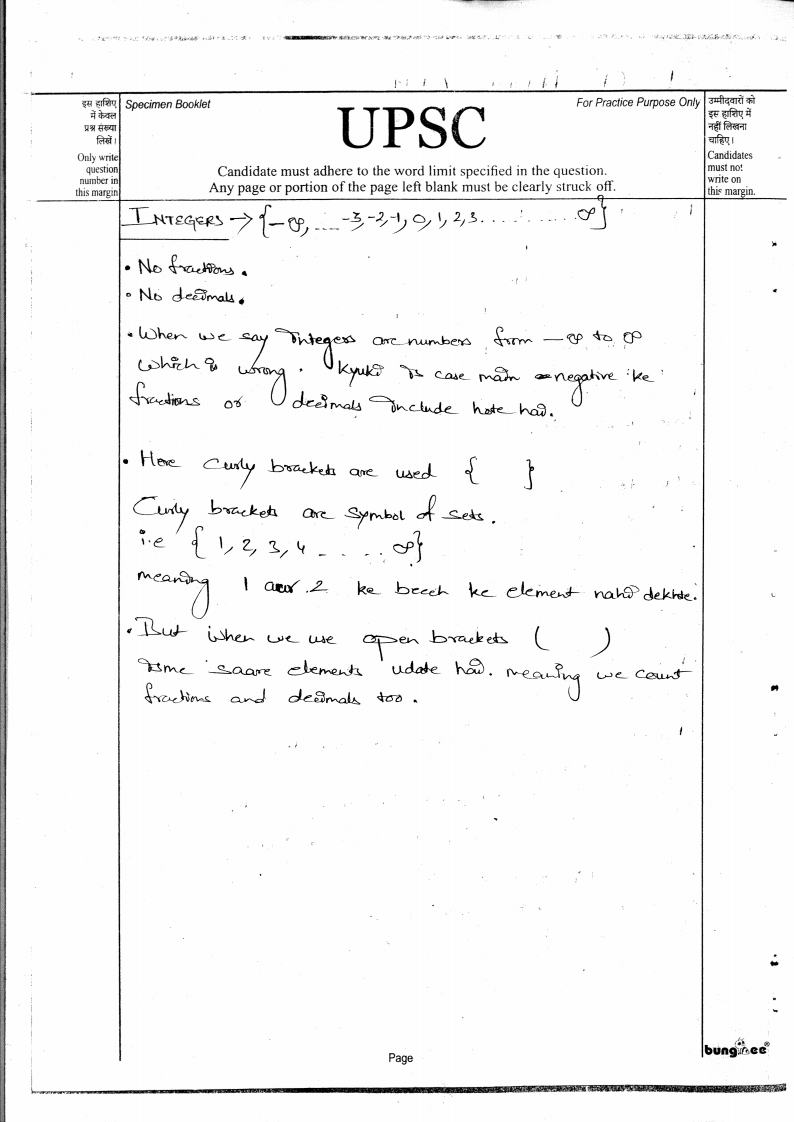 इस हाशिए में केवल प्रश्न संख्या लिखें।
Only write question number in this margin
Specimen Booklet
For Practice Purpose Only
UPSC
Candidate must adhere to the word limit specified in the question.
Any page or portion of the page left blank must be clearly struck off.
उम्मीदवारों को इस हाशिए में नहीं लिखना चाहिए।
Candidates must not write on this margin.
INTEGERS → {-∞, .... -3, -2, -1, 0, 1, 2, 3 . . . . . . . . . . ∞}
• No fractions.
• No decimals.
• When we say Integers are numbers from -∞ to ∞
which is wrong. Kyuki is case main negative ke
fractions or decimals include hote hai.
• Here Curly brackets are used { }
Curly brackets are symbol of sets.
i.e { 1, 2, 3, 4 . . . . . ∞}
meaning 1 aur 2 ke beech ke element nahi dekhte.
• But when we use open brackets ( )
isme saare elements udate hai. meaning we count
fractions and decimals too.
Page